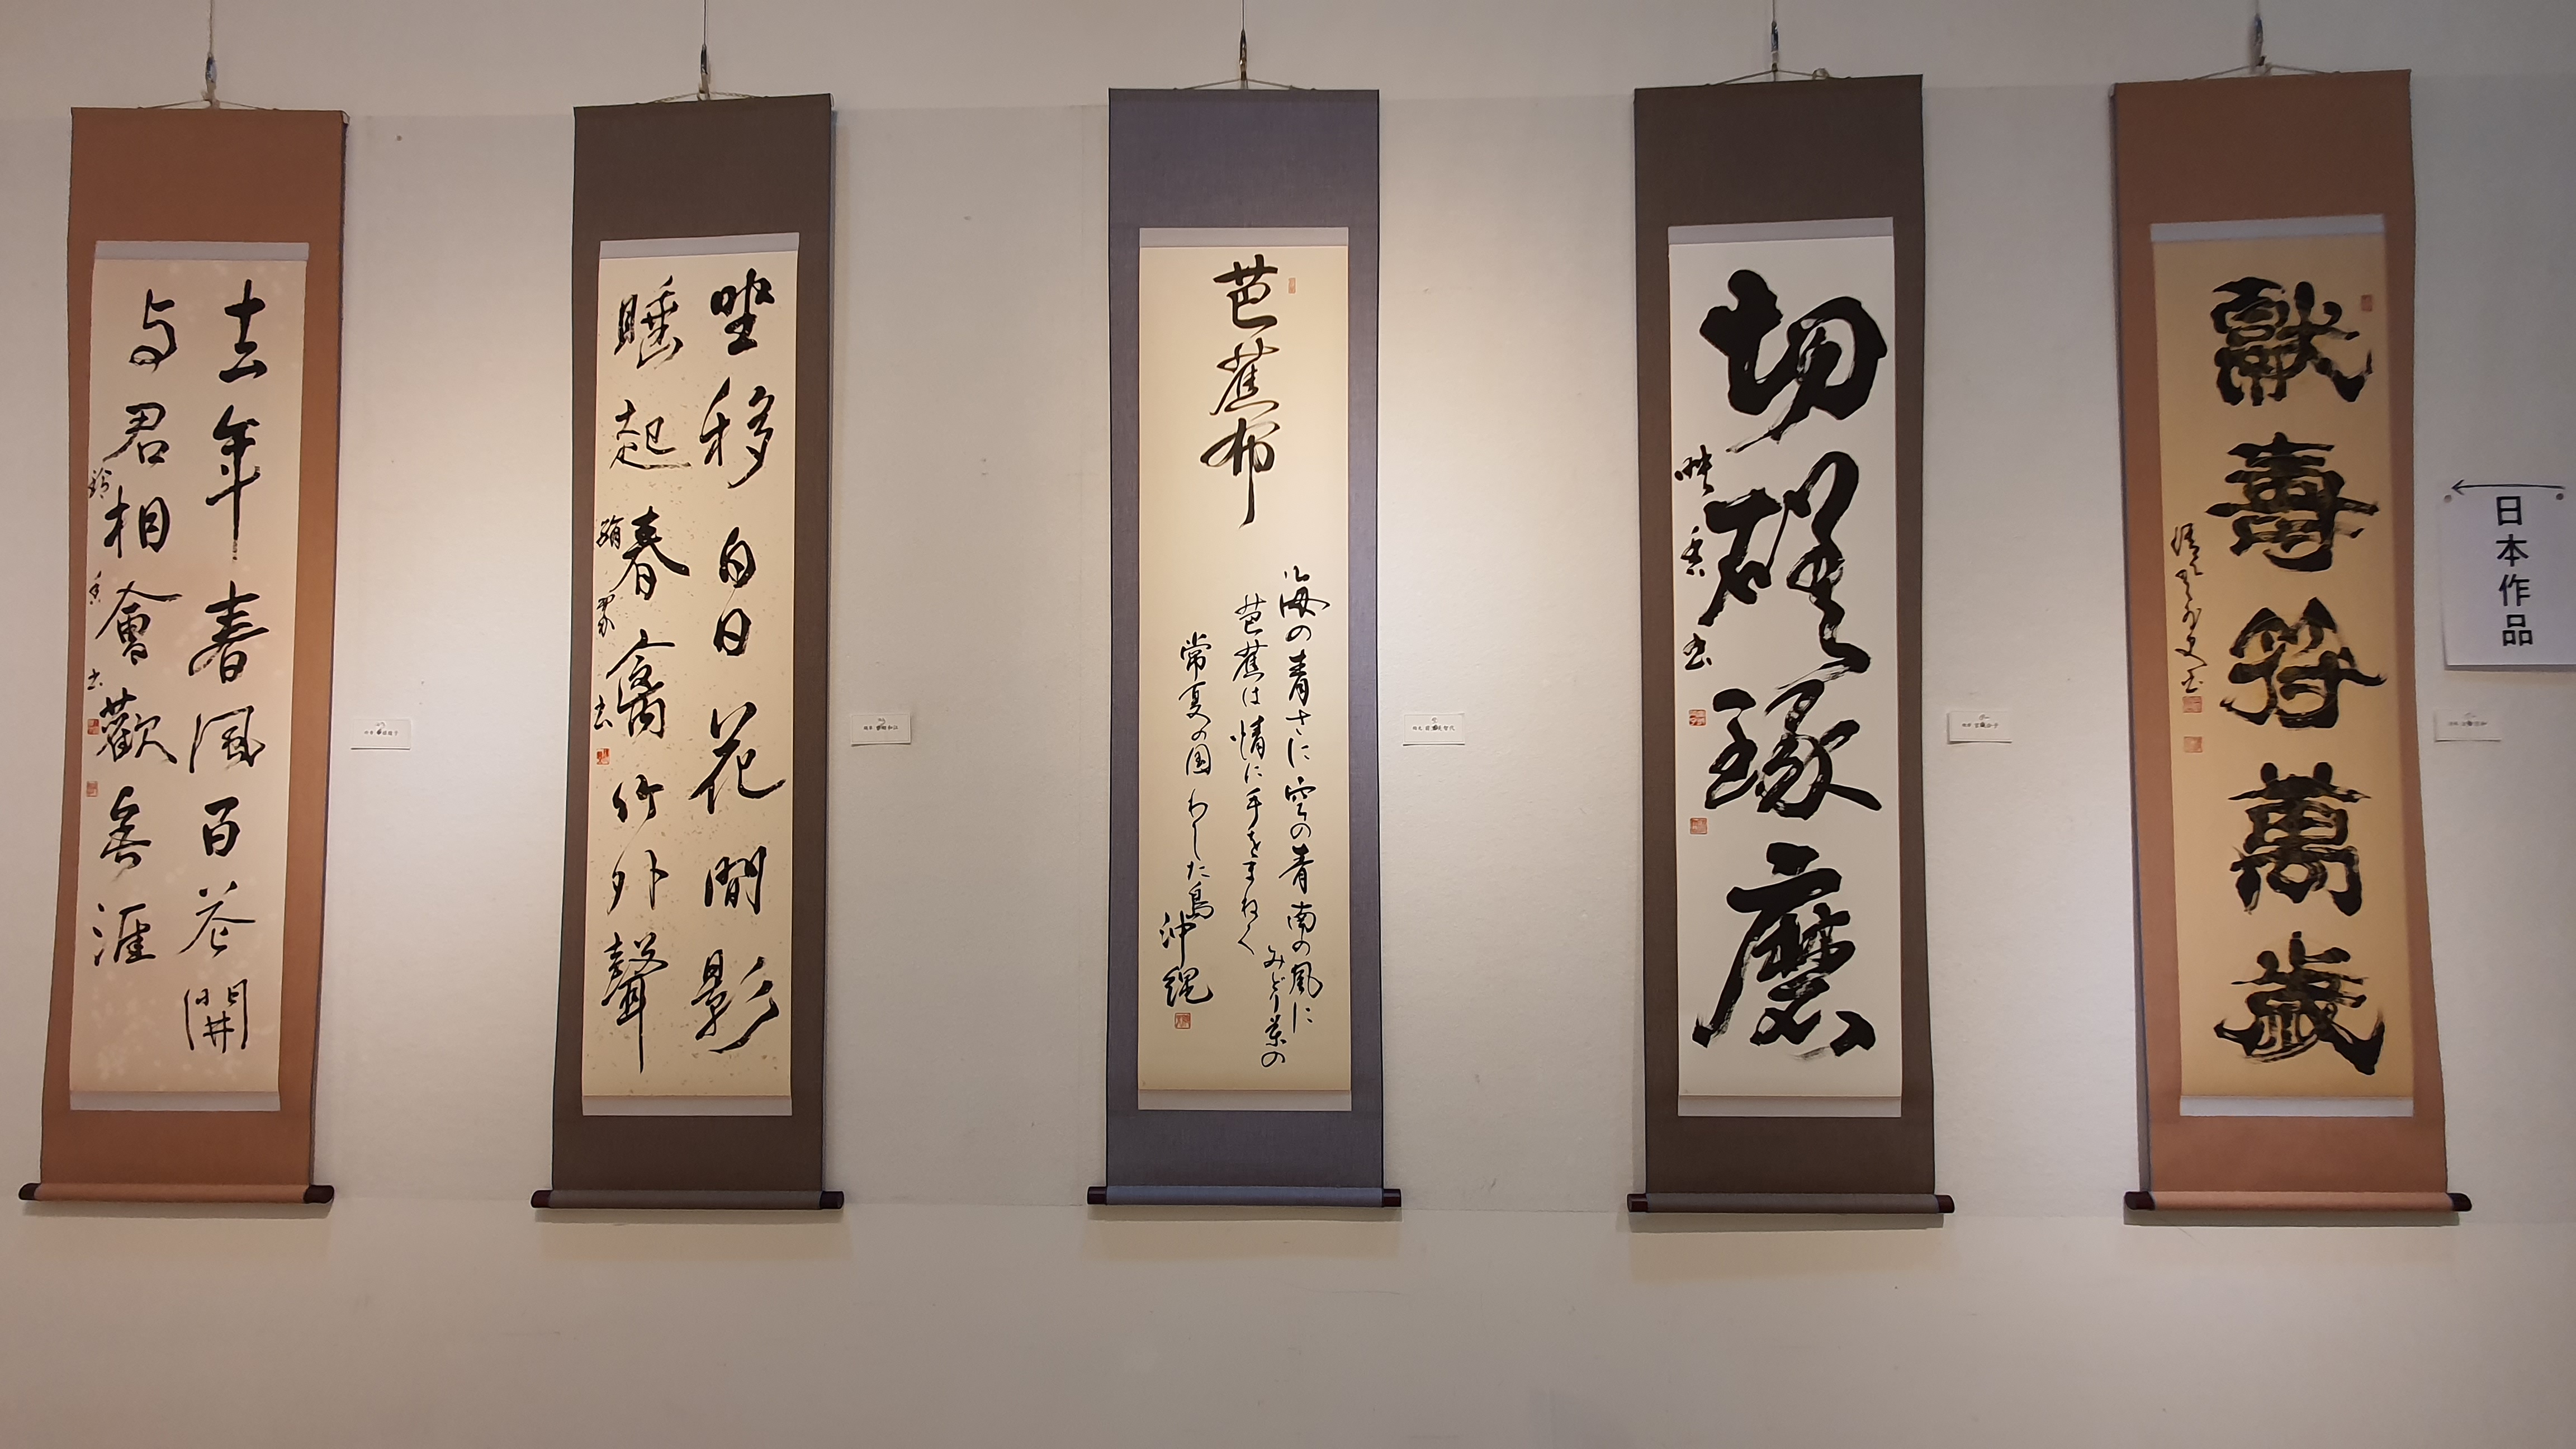 日本作品
獻壽符萬歲
切磋琢磨
映香書
芭蕉布
海の青さに空の青南の風に
みどり葉の
芭蕉は情に手をまねく
常夏の国わした島
沖縄
坐移白日花間影
睡起春禽竹外聲
去年春風百花開
与君相會歡無涯